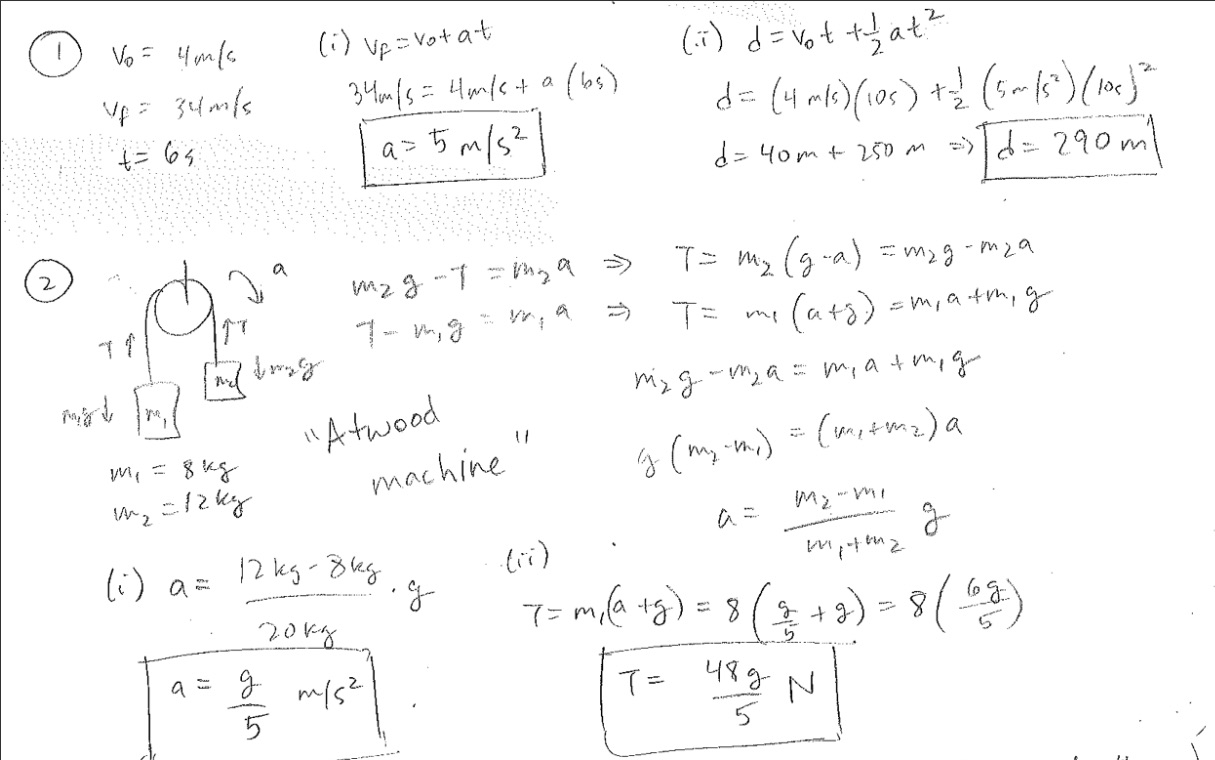 1
V₀ = 4m/s
V_f = 34m/s
t = 6s
(i) V_f = V₀ + at
34m/s = 4m/s + a (6s)
a = 5 m/s²
(ii) d = V₀t + 1/2 at²
d = (4 m/s)(10s) + 1/2 (5m/s²)(10s)²
d = 40m + 250 m ⇒ d = 290 m
2
a
T↑
↑T
m₁g↓
m₁
m₂
↓m₂g
m₁ = 8kg
m₂ = 12kg
"Atwood
machine"
m₂g - T = m₂a ⇒ T = m₂(g-a) = m₂g - m₂a
T - m₁g = m₁a ⇒ T = m₁(a+g) = m₁a + m₁g
m₂g - m₂a = m₁a + m₁g
g(m₂-m₁) = (m₁+m₂)a
a = (m₂-m₁)/(m₁+m₂) g
(i) a = (12kg-8kg)/20kg · g
a = g/5 m/s²
(ii)
T = m₁(a+g) = 8(g/5 + g) = 8(6g/5)
T = 48g/5 N